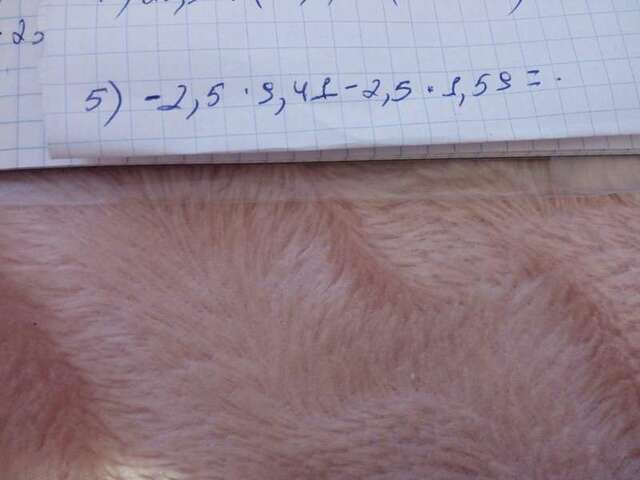 5) -2,5 · 9,41 - 2,5 · 1,59 = .